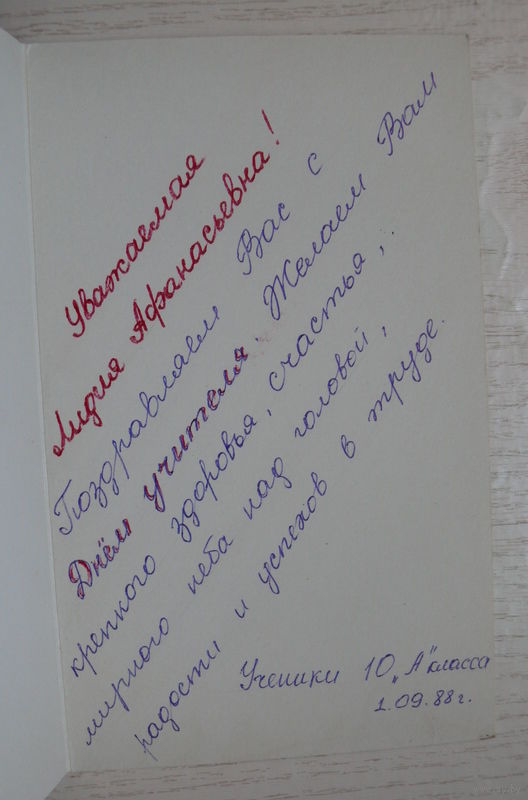 Уважаемая
Лидия Афанасьевна!
Поздравляем Вас с
Днём учителя. Желаем Вам
крепкого здоровья, счастья,
мирного неба над головой,
радости и успехов в труде.
Ученики 10 „А“ класса
1.09.88 г.